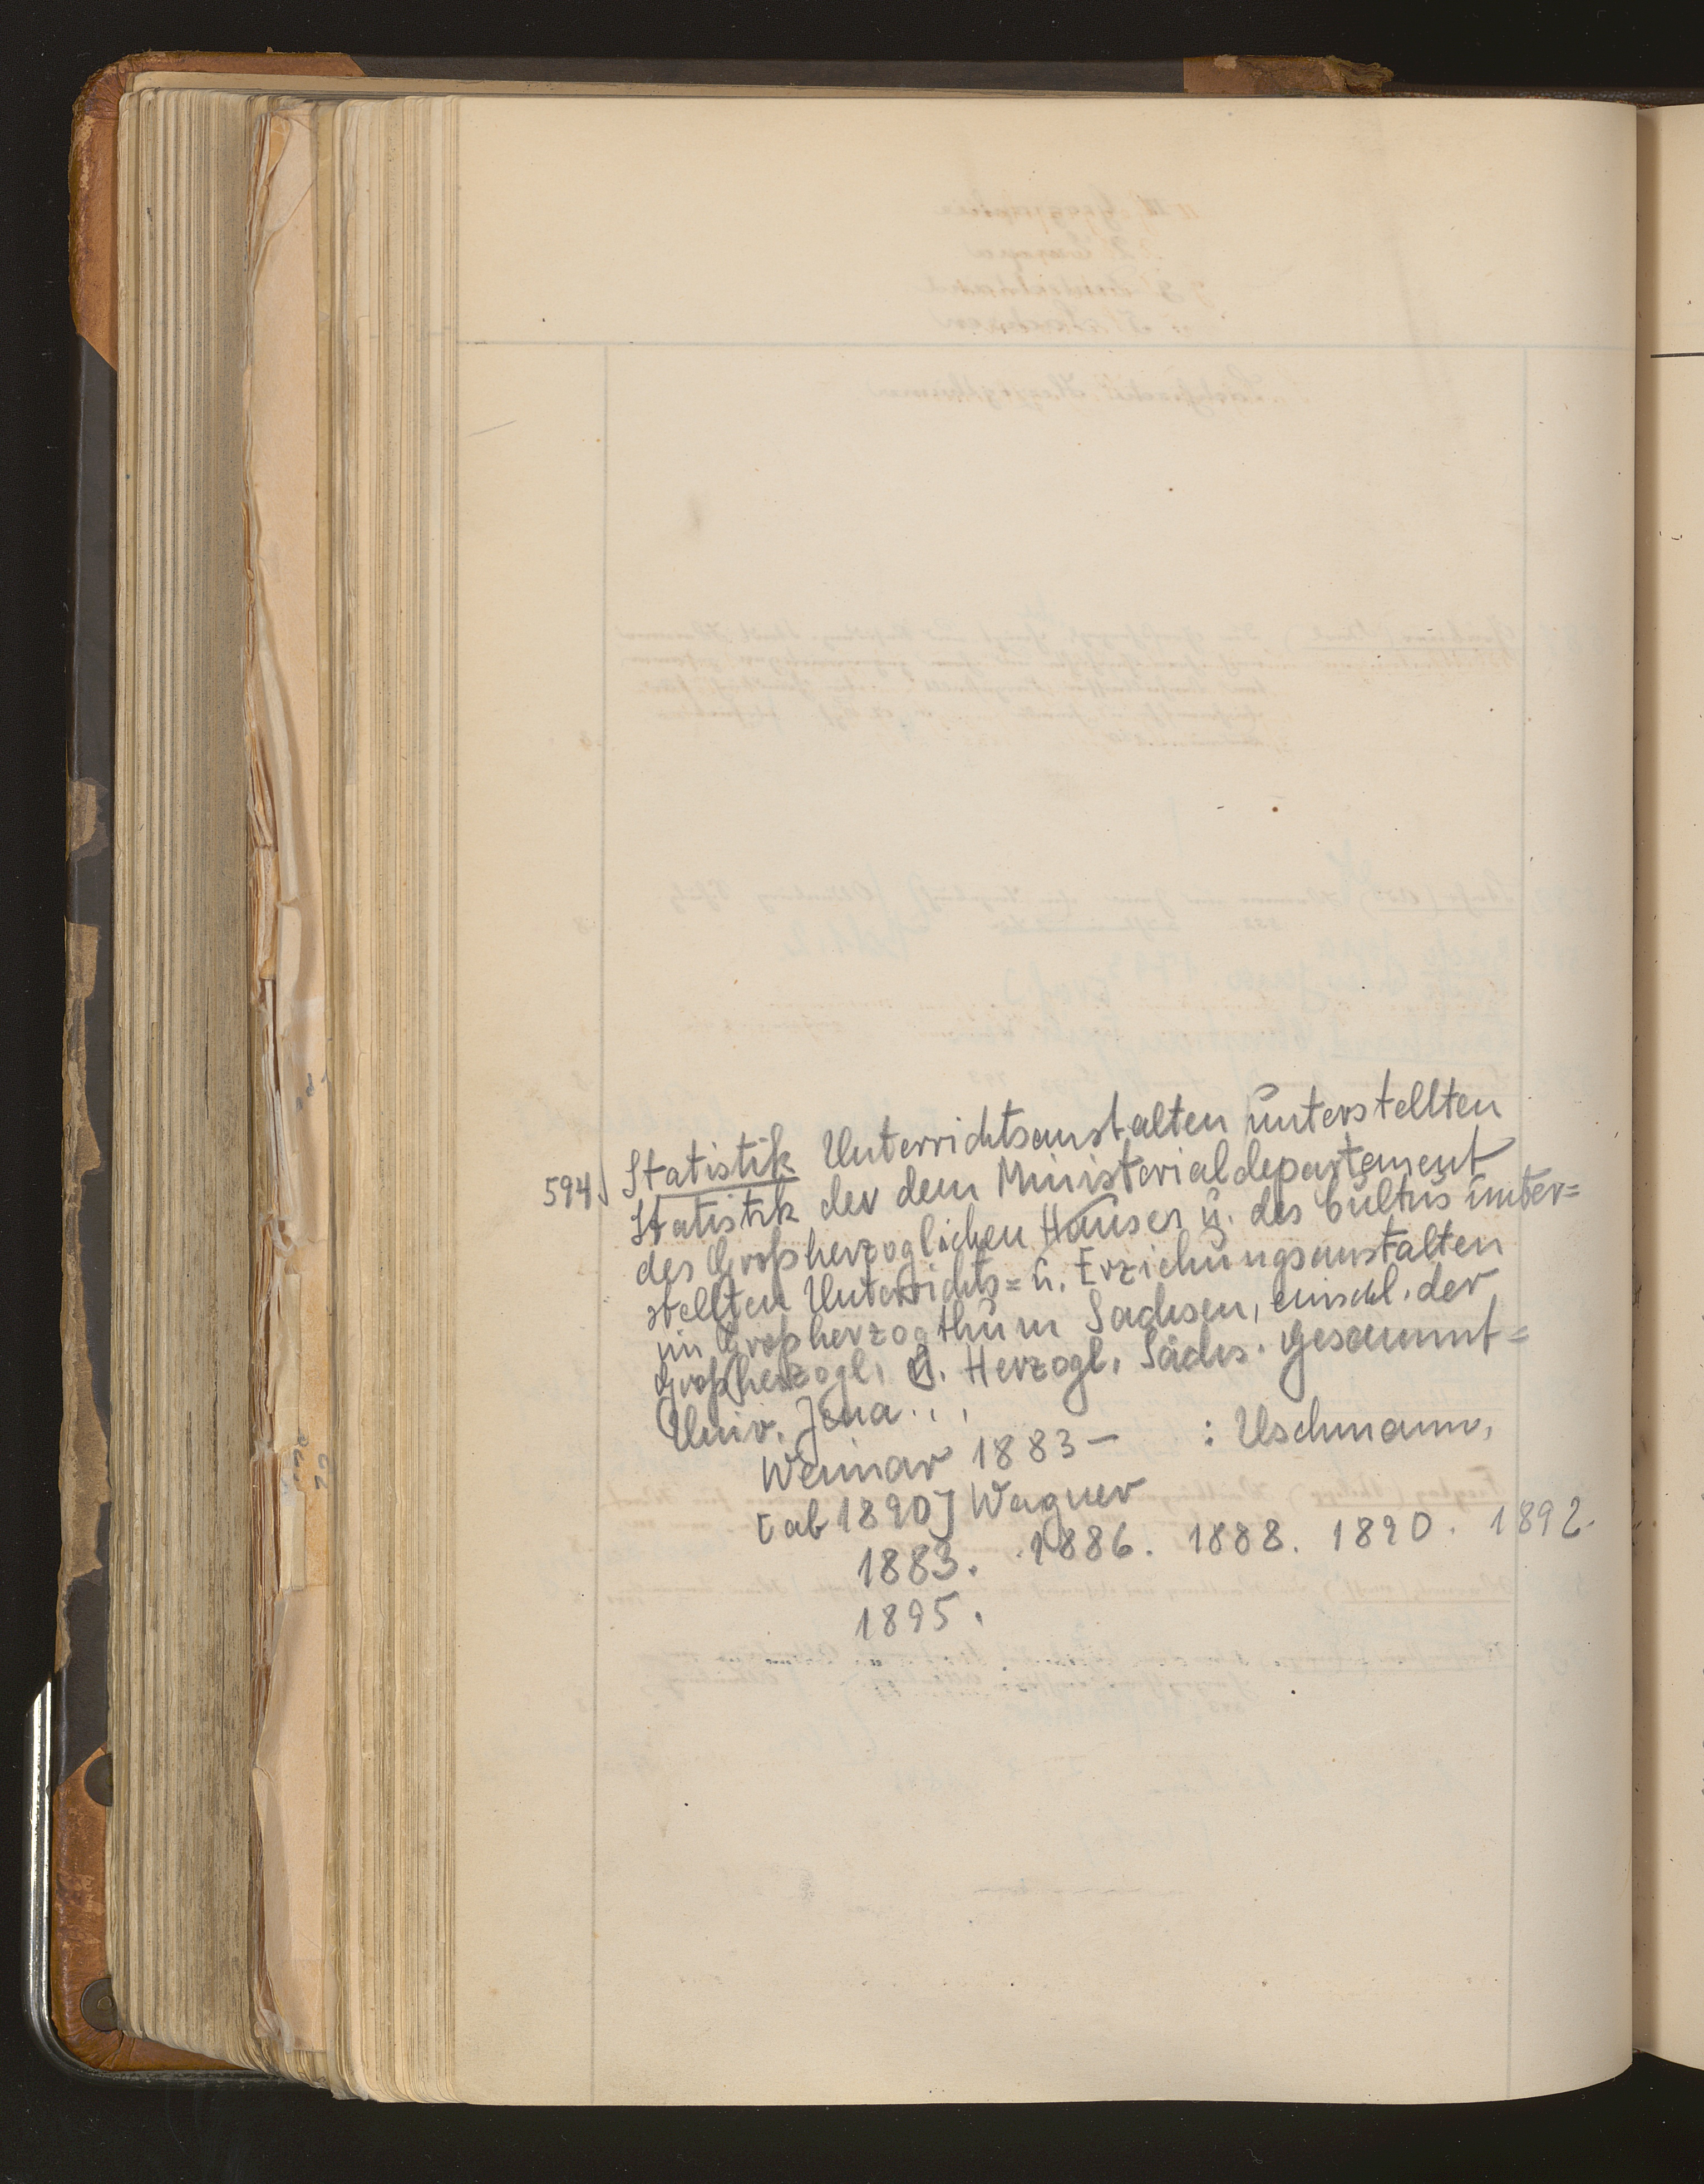 594 Statistik Unterrichtsanstalten unterstellten
Statistik der dem Ministerialdepartement
des Großherzoglichen Hauses u. des Cultus unter=
stellten Unterrichts= u. Erziehungsanstalten
im Großherzogthum Sachsen, einschl. der
Großherzogl. u. Herzogl. Sächs. Gesammt=
Univ. Jena...
Weimar 1883– : Uschmann,
[ab 1890] Wagner
1883. 1886. 1888. 1890. 1892.
1895.